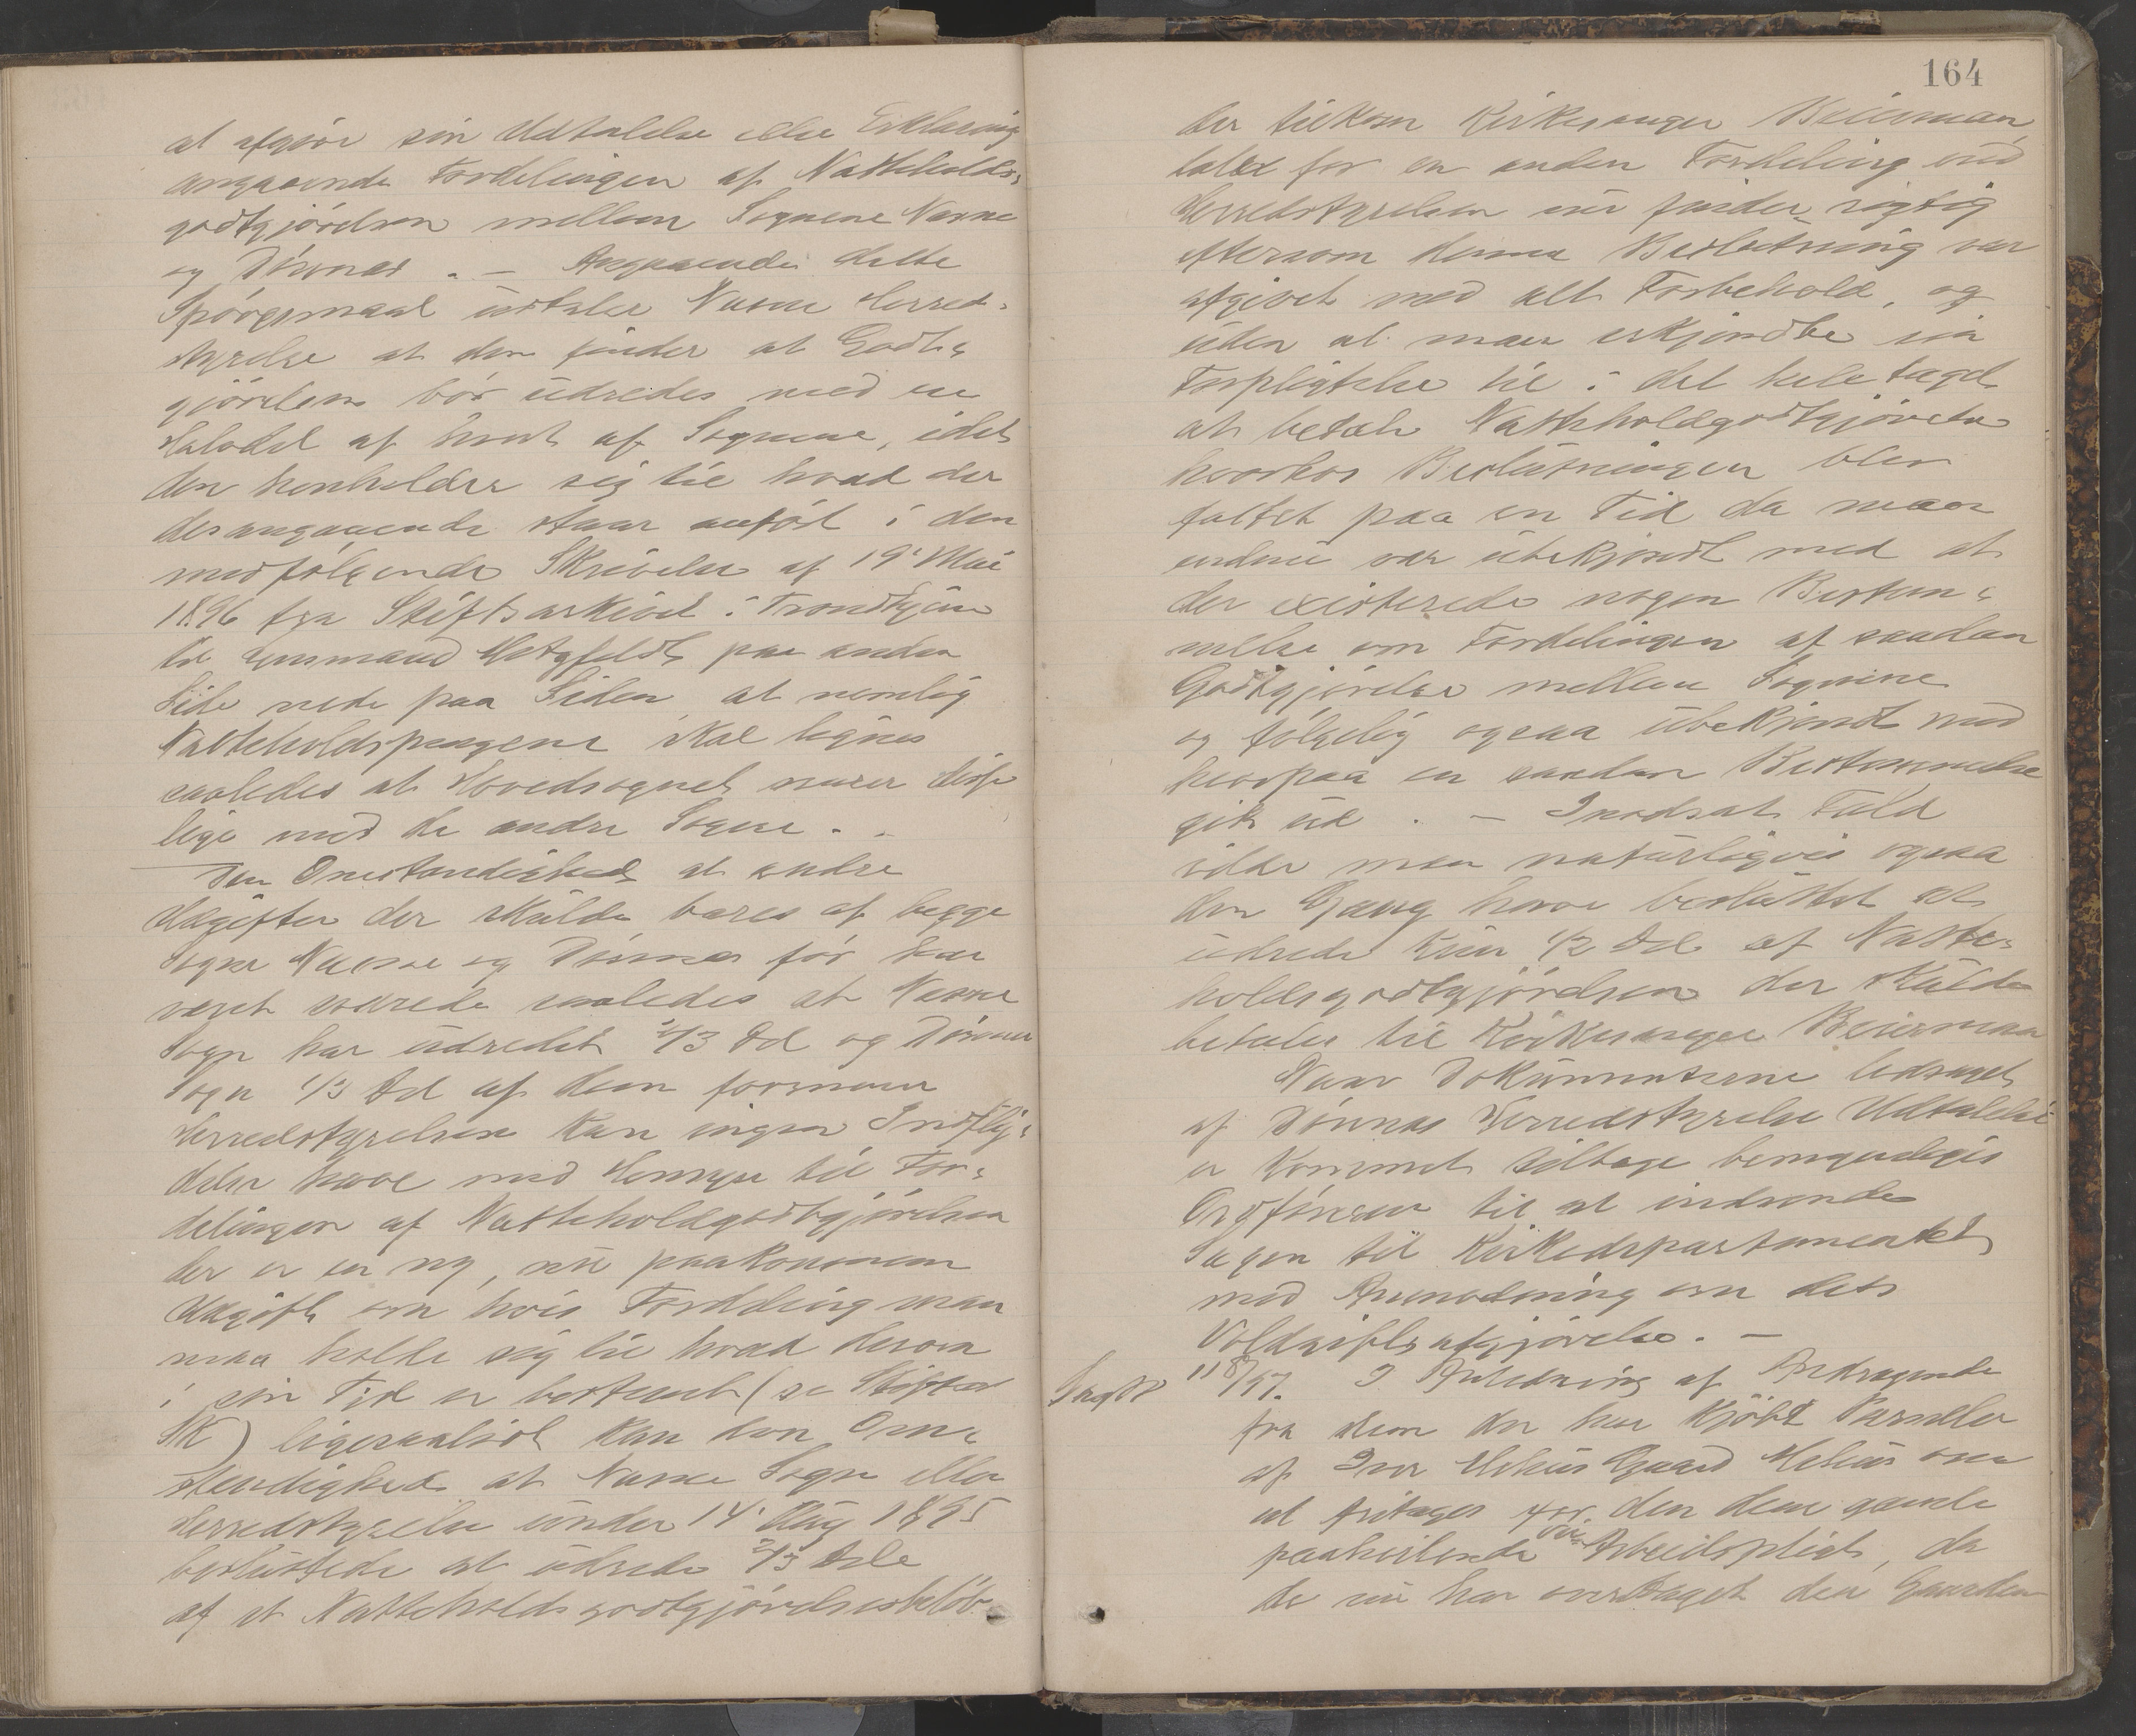 at afgive sin Udtalelse eller Erklæring
angaaende Fordelingen af Natteholds-
godtgjørelsen mellem Sognene Nesne
og Dønnes. – Angaaende dette
Spørgsmaal udtaler Nesne Herred-
styrelse at den finder at Godt-
gjørelsen bør udredes med en
Halvdel af hvert af Sognene, idet
den henholder sig til hvad der
desangaaende staar anført i den
medfølgende Skrivelse af 19' Mai
1896 fra Stiftsarkivet i Trondhjem
til Lensmand paa anden
Side nede paa Siden at nemlig
Natteholdspengene skal lignes
saaledes at Hovedsognet svarer
lige med de andre Sogne. -
Den Omstændighed at andre
Udgifter der skulde bæres af begge
Sogne Nesne og Dønnes før har
været udrede saaledes at Nesne
Sogn har udredet 2/3 Del og Dønnes
Sogn 1/3 Del af dem formener
Herredstyrelsen kan ingen Indfly-
delse have med Hensyn til For-
delingen af Natteholdgodtgjørelsen
der er en ny, nu paakommen
Udgift om hvis Fordeling man
maa holde sig til hvad derom
i sin Tid er bestemt (se Stiftets
Sk) ligesaalidt kan den Om-
stendighed at Nesne Sogn eller
Herredstyrelse under 14' Aug 1895
besluttede at udrede 2/3 Dele
af et Natteholdsgodtgjørelsesbeløb
164
der tilkom Kirkesanger Beierman
tale for en anden Fordeling end
Herredstyrelsen nu finder rigtig
eftersom denne Beslutning var
afgivet med alt Forbehold, og
uden at man erkjendte sin
Forpligtelse til i det hele taget
at betale Natteholdgodtgjørelse
hvorhos Beslutningen blev
fattet paa en Tid da man
endnu var ubekjendt med at
der existerede nogen Bestem-
melse om Fordelingen af saadan
Godtgjørelse mellem Sognene
og følgelig ogsaa ubekjendt med
hvorpaa en saadan Bestemmelse
gik ud. – I modsat Fald
vilde man naturligvis ogsaa
den Gang have besluttet at
udrede kun 1/2 Del af Natte-
holdsgodtgjørelsen der skulde
betales til Kirkesanger Beierman
Naar Dokumenterne ledsaget
af Dønnes Herredstyrelse Udtalelse
er kommet tilbage bemyndiges
Ordføreren til at indsende
Sagen til Kirkedepartementet
med Anmodning om dets
Voldgiftsafgjørelse. –
Sag 11 8/97. I Anledning af Andragende
fra dem der har kjøbt Parceller
af Iver Gaard om
at fritages for den dem gamle
paahvilende Arbeidspligt, da
de nu har overtaget den Gaarden